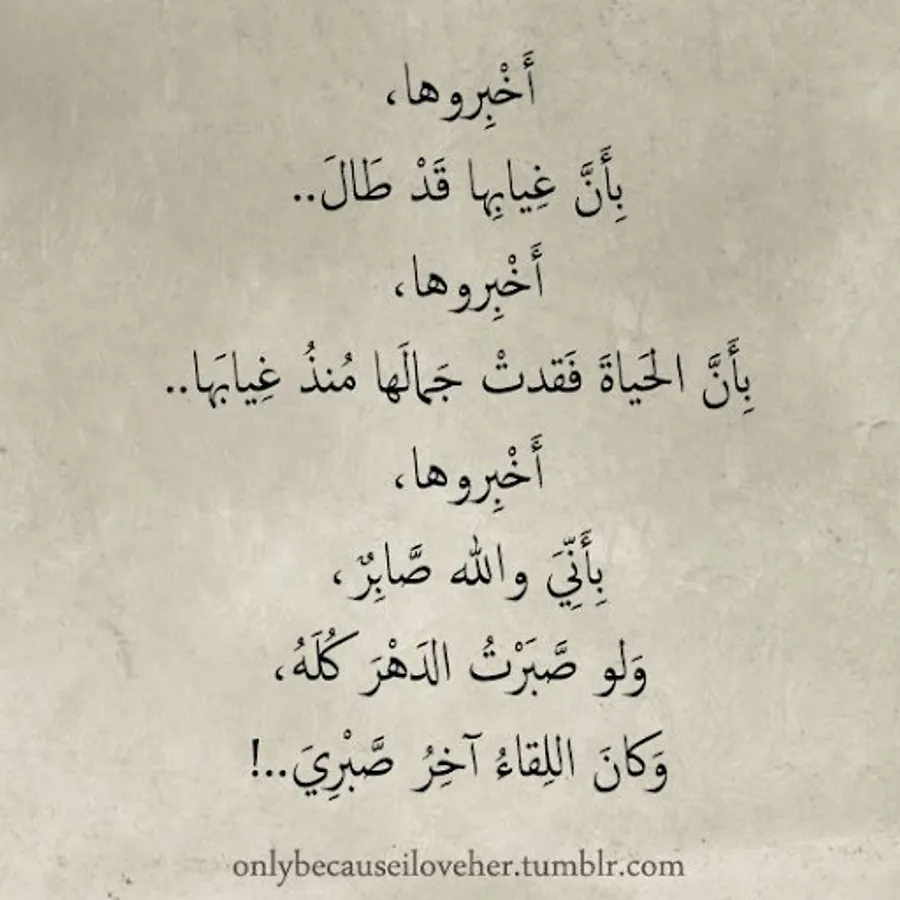 أَخْبِروها،
بِأَنَّ غِيابِها قَدْ طَالَ..
أَخْبِروها،
بِأَنَّ الحَياةَ فَقدتْ جَمالَها مُنذُ غِيابَها..
أَخْبِروها،
بِأَنِّيَ والله صَّابِرٌ،
وَلو صَّبَرْتُ الدَهْرَ كُلَهُ،
وَكانَ اللِقاءُ آخِرُ صَّبْرِيَ..!
onlybecauseiloveher.tumblr.com